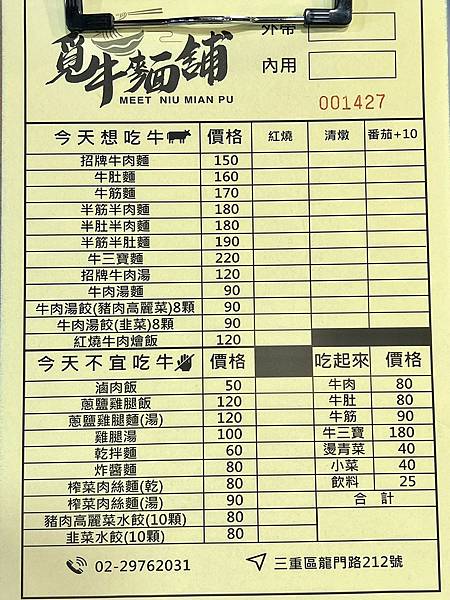 外帶
覓牛麵舖
MEET NIU MIAN PU
內用
001427
今天想吃牛 價格 紅燒 清燉 番茄+10
招牌牛肉麵 150
牛肚麵 160
牛筋麵 170
半筋半肉麵 180
半肚半肉麵 180
半筋半肚麵 190
牛三寶麵 220
招牌牛肉湯 120
牛肉湯麵 90
牛肉湯餃(豬肉高麗菜)8顆 90
牛肉湯餃(韭菜)8顆 90
紅燒牛肉燴飯 120
今天不宜吃牛 價格 吃起來 價格
滷肉飯 50 牛肉 80
蔥鹽雞腿飯 120 牛肚 80
蔥鹽雞腿麵(湯) 120 牛筋 90
雞腿湯 100 牛三寶 180
乾拌麵 60 燙青菜 40
炸醬麵 80 小菜 40
榨菜肉絲麵(乾) 80 飲料 25
榨菜肉絲麵(湯) 90 合計
豬肉高麗菜水餃(10顆) 80
韭菜水餃(10顆) 80
02-29762031 三重區龍門路212號